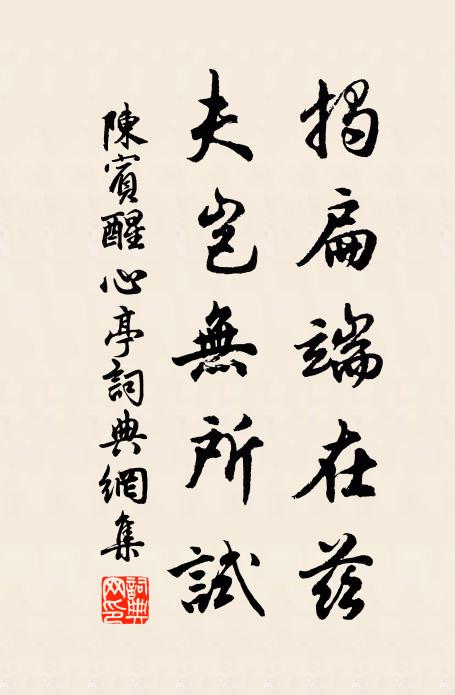 揭扁端在兹
夫岂無所試
陳賓醒心亭詞典網集
詞典網印